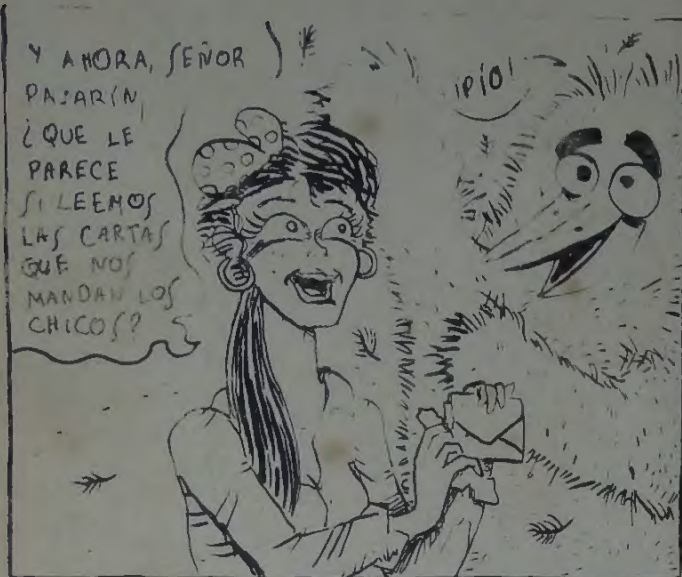 Y AHORA, SEÑOR
PAJARÍN,
¿QUE LE
PARECE
SI LEEMOS
LAS CARTAS
QUE NOS
MANDAN LOS
CHICOS?
¡PÍO!